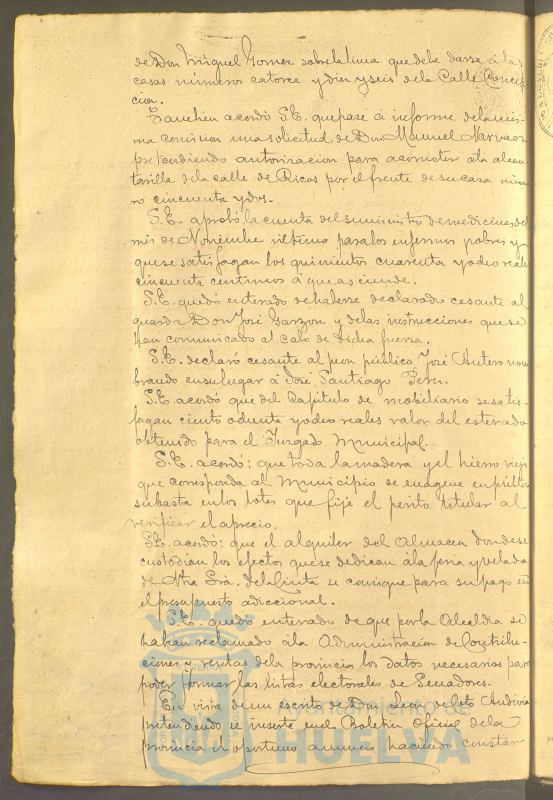 de Don Miguel Gomez sobre la linea que debe darse á las
casas números catorce y diez y seis de la Calle Concep-
cion.
Tambien acordó S.E. que pase á informe de la mis-
ma comision una solicitud de Don Manuel Narvaez
pretendiendo autorizacion para acometer á la alcan-
tarilla de la calle de Ricos por el frente de su casa núme-
ro cincuenta y dos.
S.E. aprobó la cuenta del suministro de medicinas del
mes de Noviembre último para los enfermos pobres y
que se satisfagan los quinientos cuarenta y ocho reales
cincuenta centimos á que asciende.
S.E. quedó enterado de haberse declarado cesante al
guarda Don José Garzon y de las instrucciones que se
han comunicado al Cabo de dicha fuerza.
S.E. declaró cesante al peon público José Antero nom-
brando en su lugar á José Santiago
S.E. acordó que del Capitulo de mobiliario se satis-
fagan ciento ochenta y ocho reales valor del esterado
obtenido para el Juzgado Municipal.
S.E. acordó: que toda la madera y el hierro viejo
que corresponda al Municipio se enagene en pública
subasta en los lotes que fije el perito titular al
verificar el aprecio.
S.E. acordó: que el alquiler del Almacen donde se
custodian los efectos que se dedican á la feria y velada
de Ntra Sra. de la Cinta se consigne para su pago en
el presupuesto adiccional.
S.E. quedó enterado de que por la Alcaldia se
habian reclamado á la Administracion de Contribu-
ciones y rentas de la provincia los datos necesarios para
poder formar las listas electorales de Senadores.
En vista de un escrito de Don Leon de
pretendiendo se inserte en el Boletin Oficial de la
provincia el oportuno anuncio haciendo constar
Ayuntamiento de
HUELVA